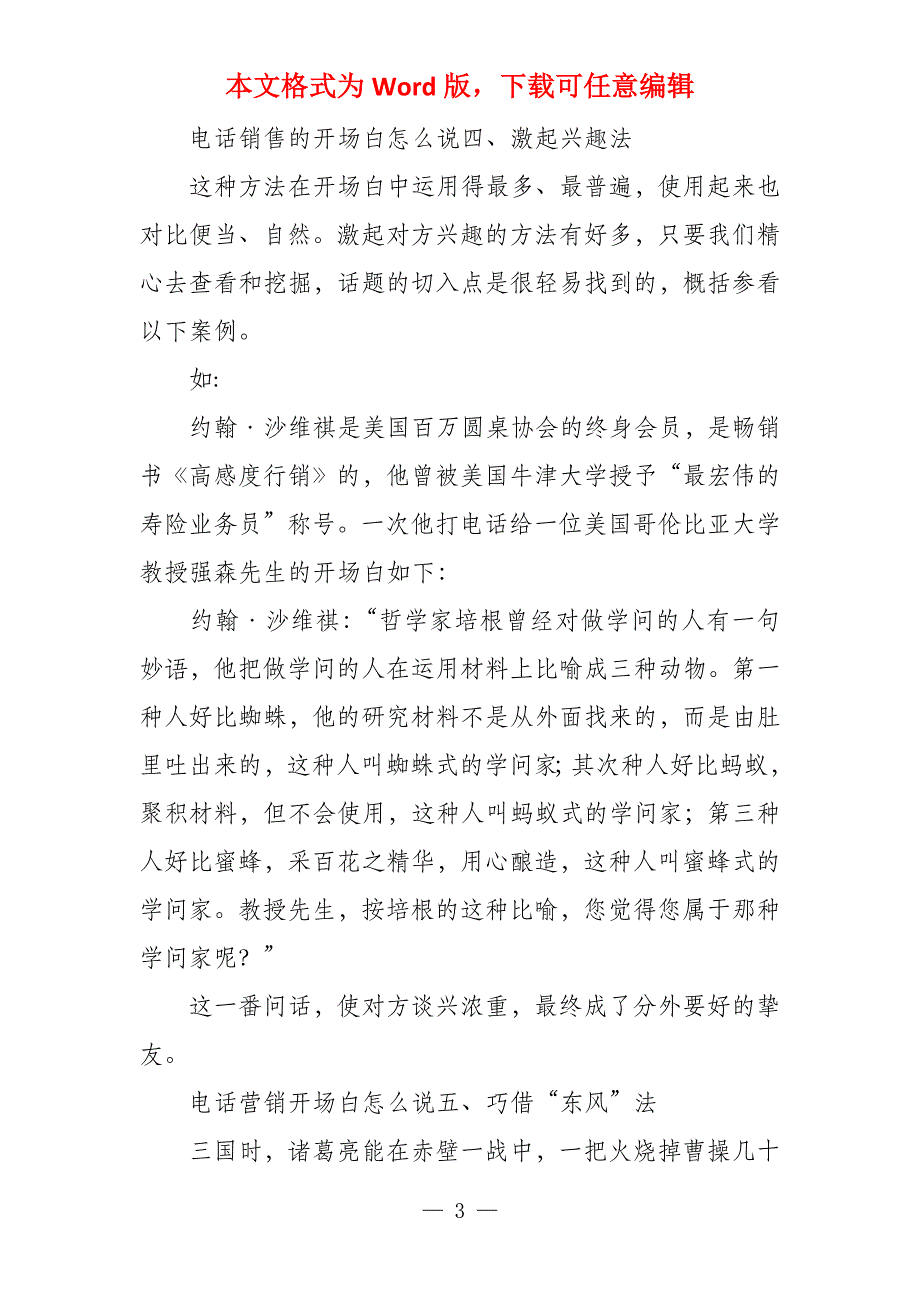 本文格式为 Word 版，下载可任意编辑
电话销售的开场白怎么说四、激起兴趣法
这种方法在开场白中运用得最多、最普遍，使用起来也
对比便当、自然。激起对方兴趣的方法有好多，只要我们精
心去查看和挖掘，话题的切入点是很轻易找到的，概括参看
以下案例。
如:
约翰·沙维祺是美国百万圆桌协会的终身会员，是畅销
书《高感度行销》的，他曾被美国牛津大学授予“最宏伟的
寿险业务员”称号。一次他打电话给一位美国哥伦比亚大学
教授强森先生的开场白如下：
约翰·沙维祺：“哲学家培根曾经对做学问的人有一句
妙语，他把做学问的人在运用材料上比喻成三种动物。第一
种人好比蜘蛛，他的研究材料不是从外面找来的，而是由肚
里吐出来的，这种人叫蜘蛛式的学问家；其次种人好比蚂蚁，
聚积材料，但不会使用，这种人叫蚂蚁式的学问家；第三种
人好比蜜蜂，采百花之精华，用心酿造，这种人叫蜜蜂式的
学问家。教授先生，按培根的这种比喻，您觉得您属于那种
学问家呢？”
这一番问话，使对方谈兴浓重，最终成了分外要好的挚
友。
电话营销开场白怎么说五、巧借“东风”法
三国时，诸葛亮能在赤壁一战中，一把火烧掉曹操几十
— 3 —